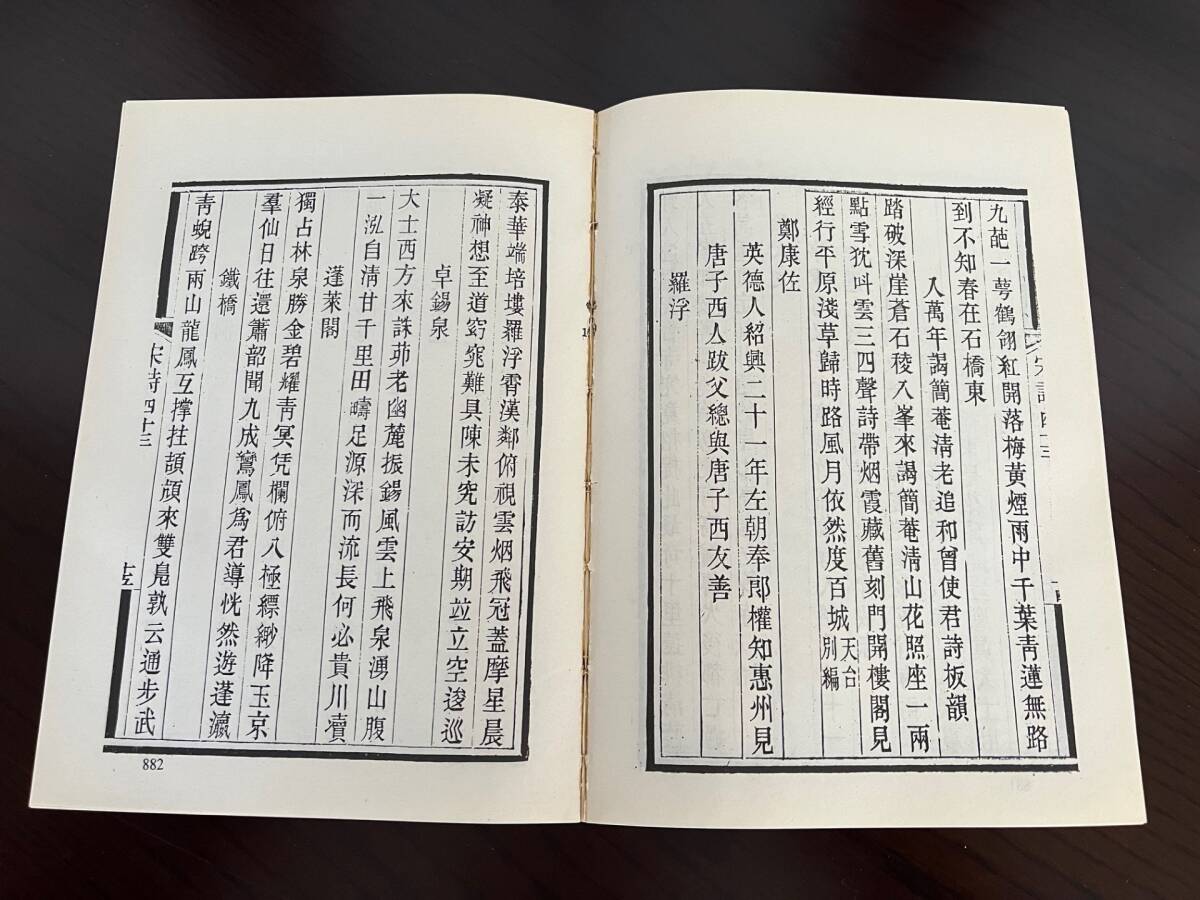 九葩一萼鶴翎紅開落梅黃煙雨中千葉靑蓮無路
到不知春在石橋東
八萬年謁簡菴淸老追和曾使君詩板韻
踏破深崖蒼石稜八峯來謁簡菴淸山花照座一兩
點雪犹呌雲三四聲詩帶烟霞藏舊刻門開樓閣見
經行平原淺草歸時路風月依然度百城天台別編
鄭康佐
英德人紹興二十一年左朝奉郎權知惠州見
唐子西人跋父總與唐子西友善
羅浮
泰華端培塿羅浮霄漢鄰俯視雲烟飛冠蓋摩星晨
凝神想至道窈窕難具陳未究訪安期竝立空逡巡
卓錫泉
大士西方來誅茆老幽麓振錫風雲上飛泉湧山腹
一泓自淸甘千里田疇足源深而流長何必貴川瀆
蓬萊閣
獨占林泉勝金碧耀靑冥凭欄俯八極縹緲降玉京
羣仙日往還蕭韶聞九成鸞鳳爲君導恍然遊蓬瀛
鐵橋
靑蜺跨兩山龍鳳互撑拄頡頏來雙鳧孰云通步武
宋詩四十三
882